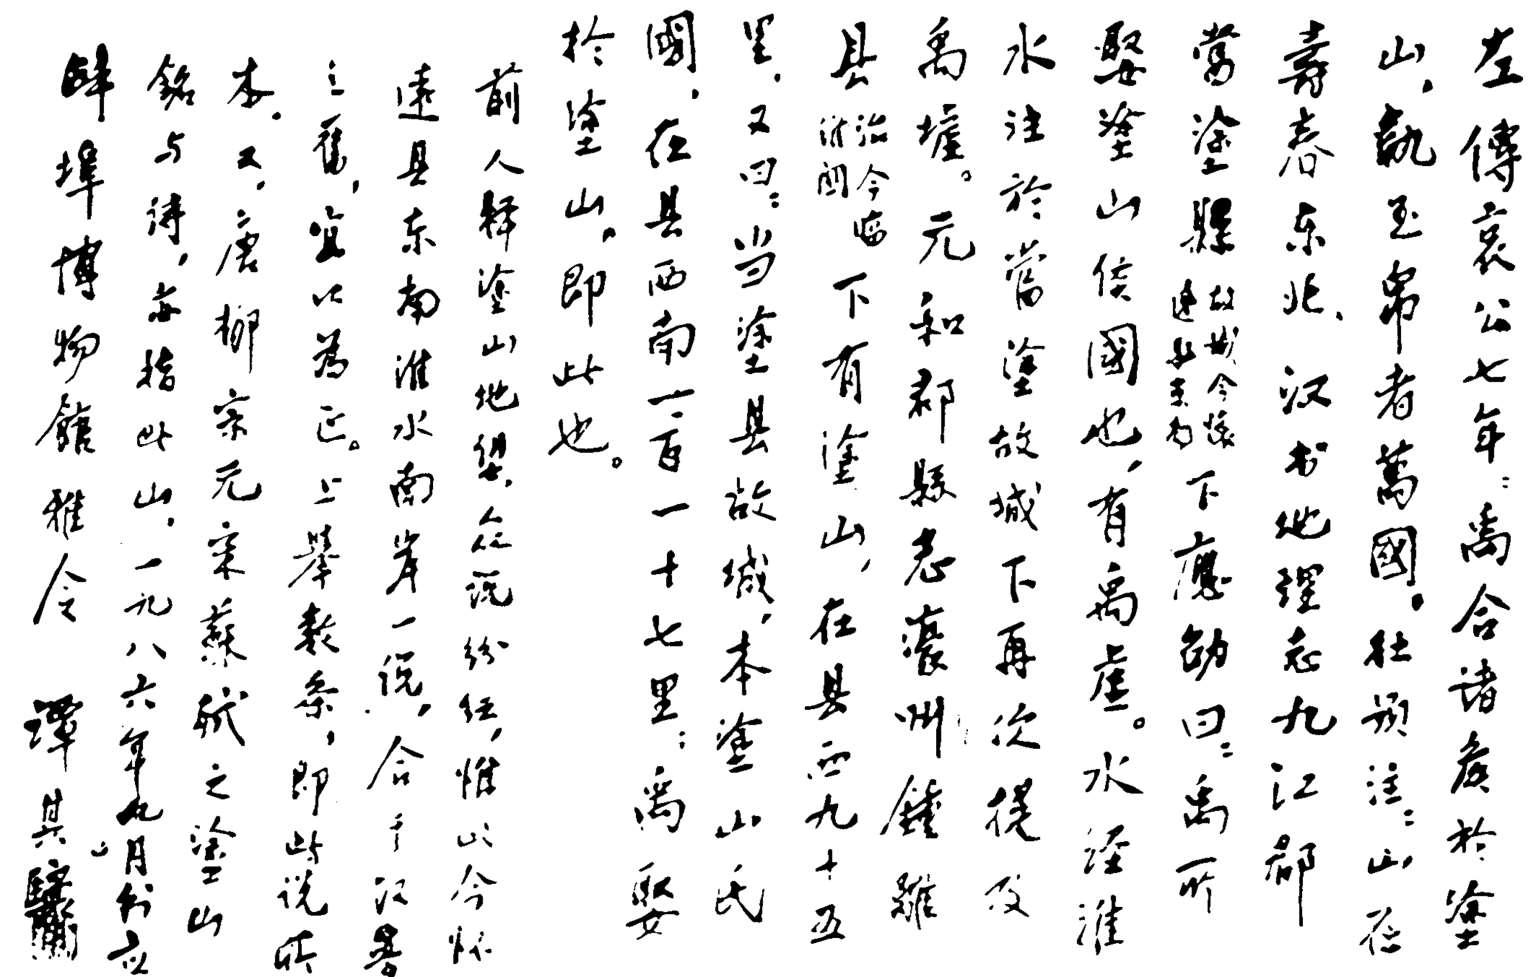 左傳哀公七年：禹合诸侯於塗
山，執玉帛者萬國。杜預注：山在
壽春东北、汉书地理志九江郡
當塗縣故城今懷遠县东南下應劭曰：禹所
娶塗山侯國也，有禹虚。水经淮
水注於當塗故城下再次提及
禹墟。元和郡縣志濠州鍾離
县治今临淮關下有塗山，在县西九十五
里，又曰：当塗县故城，本塗山氏
國，在县西南一百一十七里：禹娶
於塗山，即此也。
前人释塗山地望，众说纷纭，惟以今怀
远县东南淮水南岸一说，合于汉晋
之舊，宜以為正。上舉数条，即此说所
本。又，唐柳宗元宋蘇軾之塗山
銘与诗，亦指此山，一九八六年九月书应
蚌埠博物館雅令 譚其驤